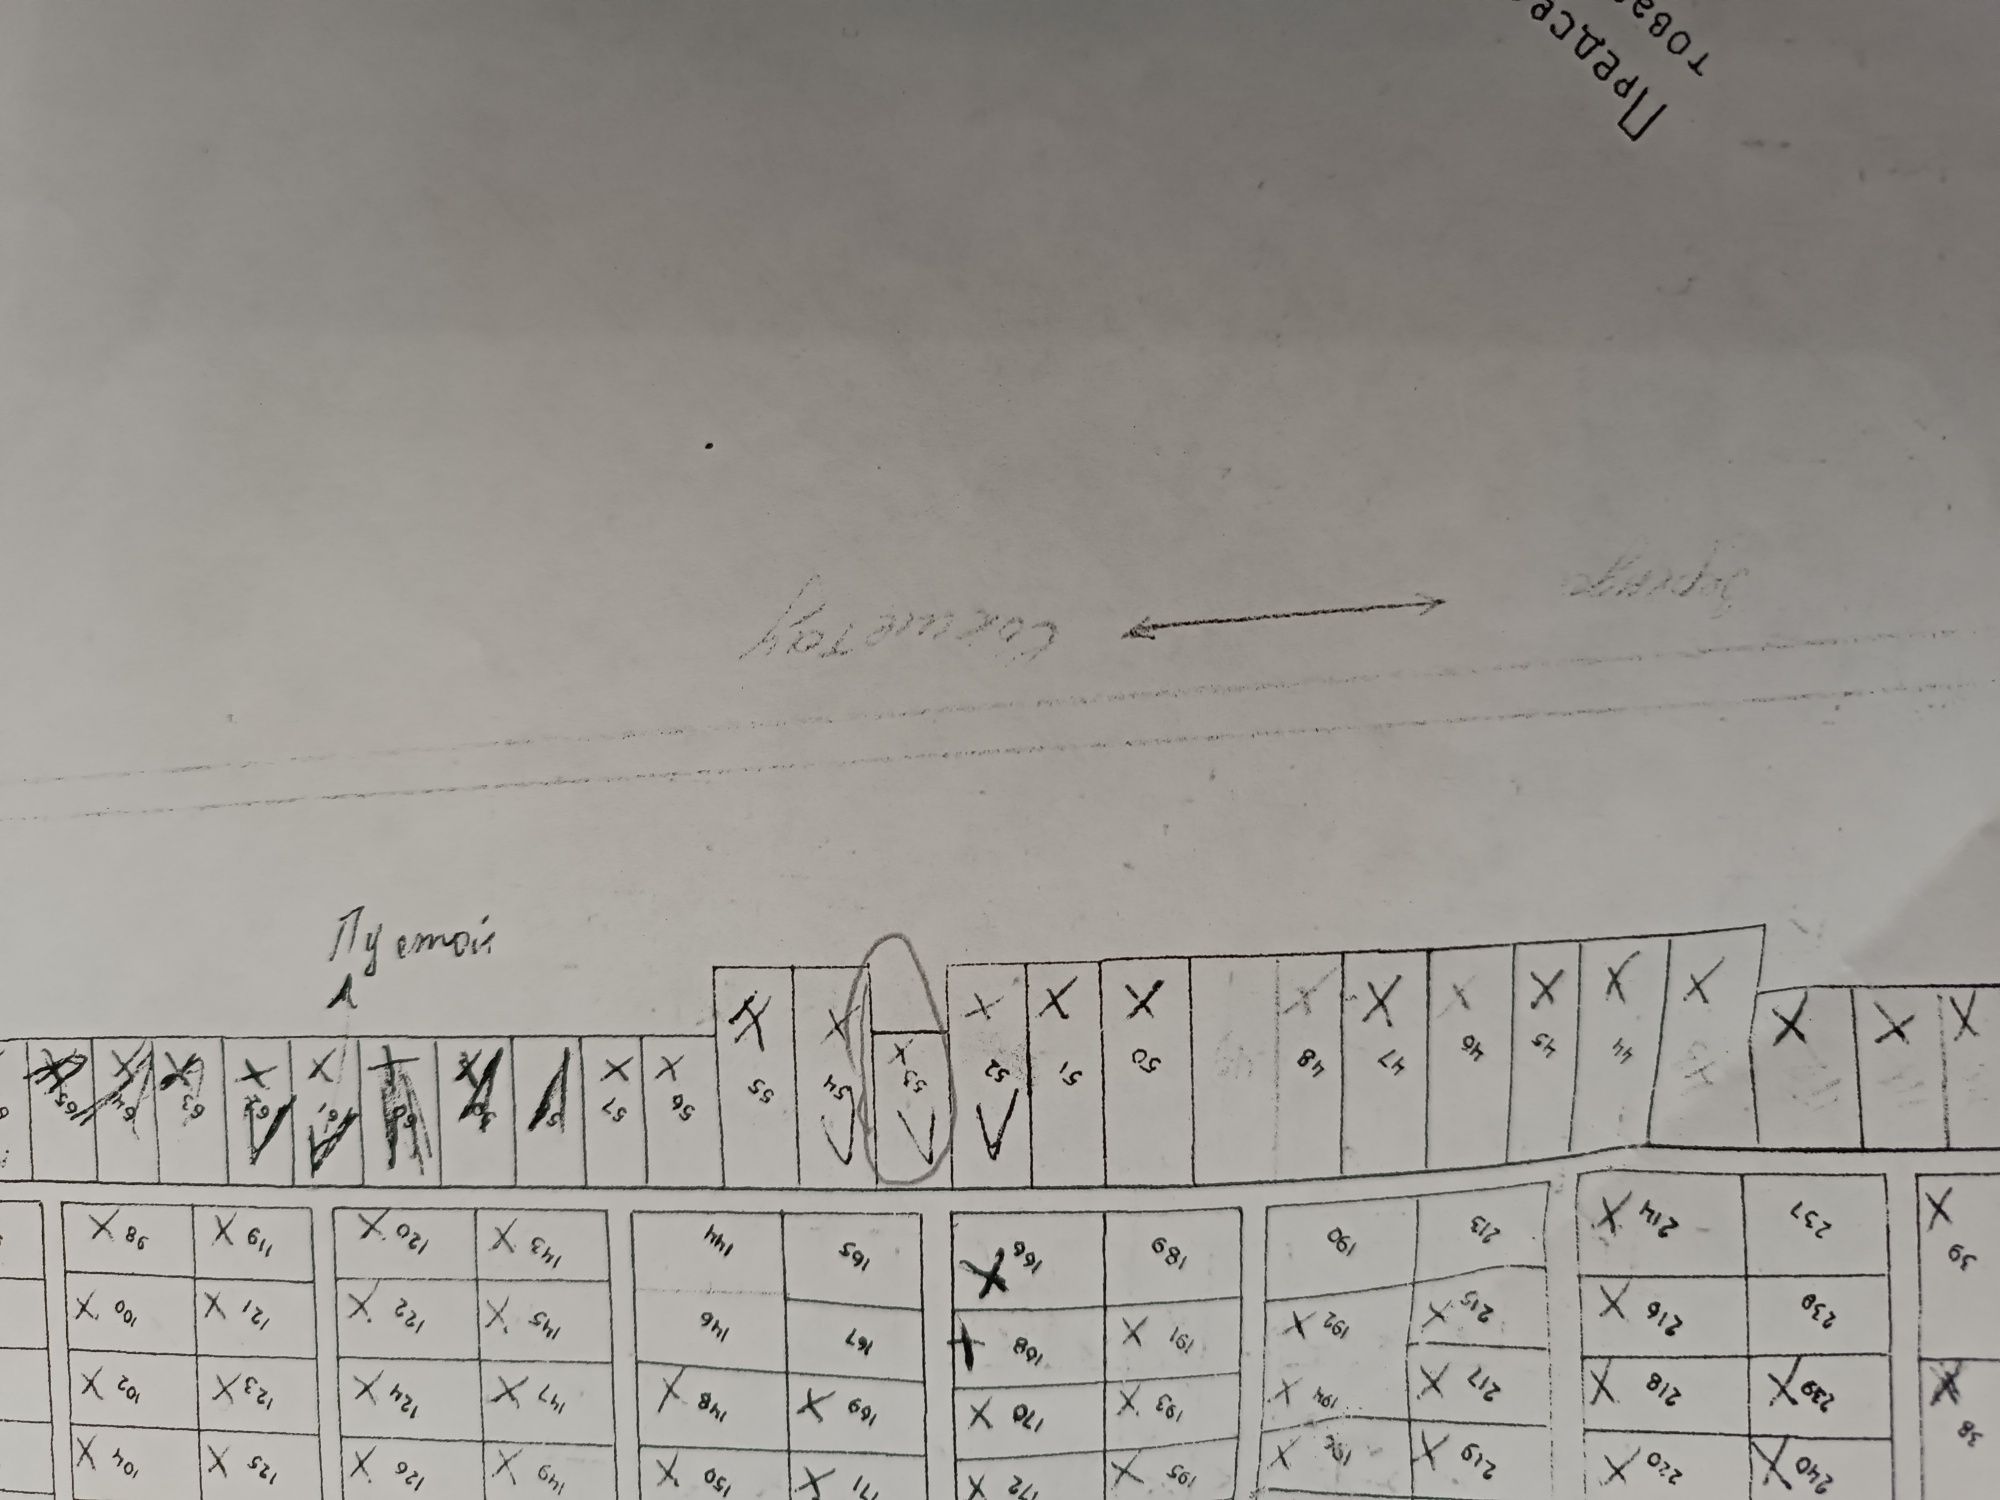 Предсе
това
Кокшетау
Зеренда
Пустой
65 64 63 62 61 60 57 56 55 54 53 52 51 50 48 47 46 45 44
98 119 120 143 144 165 166 189 190 213 214 237 39
100 121 122 145 146 167 168 191 192 215 216 238
102 123 124 147 148 169 170 193 194 217 218 239 38
104 125 126 149 150 171 172 195 219 220 240